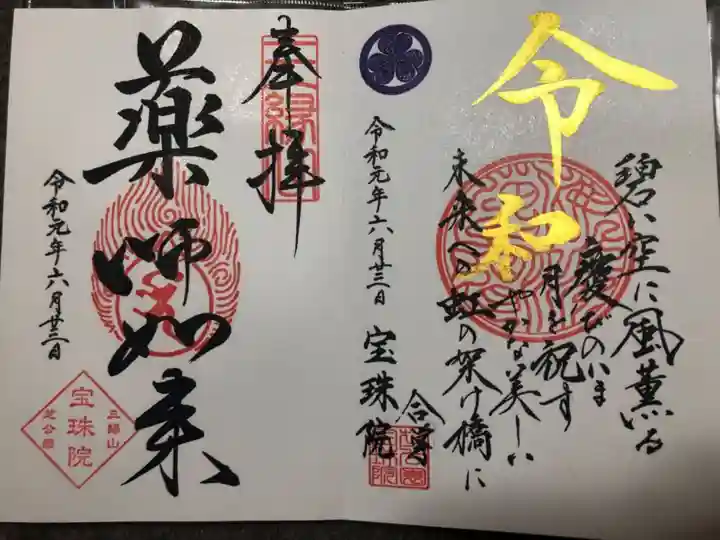 令和
碧い空に風薫る
慶びのいま
月を祝す
やかな美しい
未来への虹の架け橋に
合掌
令和元年六月廿三日
宝珠院
奉拝
薬師如来
令和元年六月廿三日
三縁山
宝珠院
芝公園